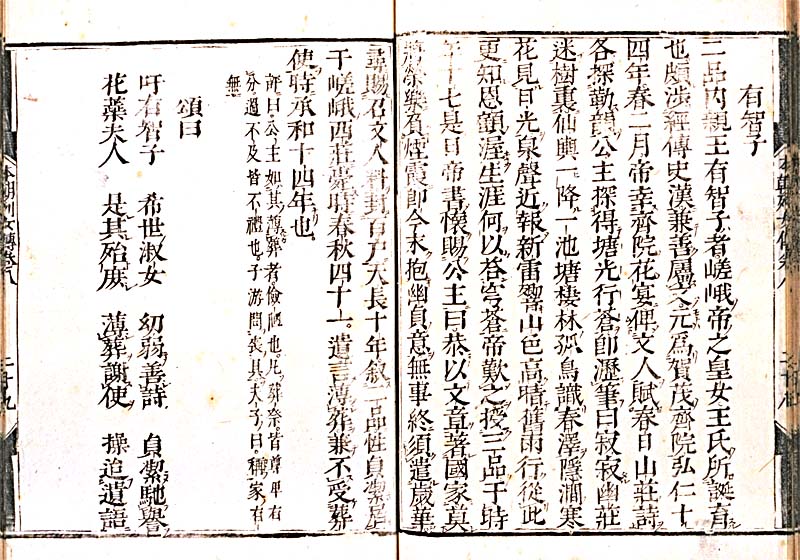 有智子
二品内親王有智子者嵯峨帝之皇女王氏所誕育
也頗渉經傳史漢兼善屬文元為賀茂齊院弘仁十
四年春二月帝幸齊院花宴俾文人賦春日山莊詩
各探勒韻公主探得塘光行蒼卽瀝筆曰寂寂幽莊
迷樹裏仙輿一降一池塘棲林孤鳥識春澤隱澗寒
花見日光泉聲近報新雷響山色高晴舊雨行從此
更知恩顧渥生涯何以荅穹蒼帝歎之授三品于時
年十七是日帝書懷賜公主曰恭以文章著國家莫
將榮樂負煙霞卽今永抱幽貞意無事終須遣歲華
尋賜召文人料封百戸天長十年叙二品性貞潔居
于嵯峨西莊薨時春秋四十一遺言薄葬兼不受葬
使時承和十四年也
許曰公主如其薄葬者儉陋也凡葬祭皆尊卑有
分過不及皆不禮也子游問喪具夫子曰稱家有
無
頌曰
吁有智子 希世淑女 幼弱善詩 貞潔馳譽
花蘂夫人 是其殆庶 薄葬謝使 操追遺語
本朝列女傳卷八 二十九